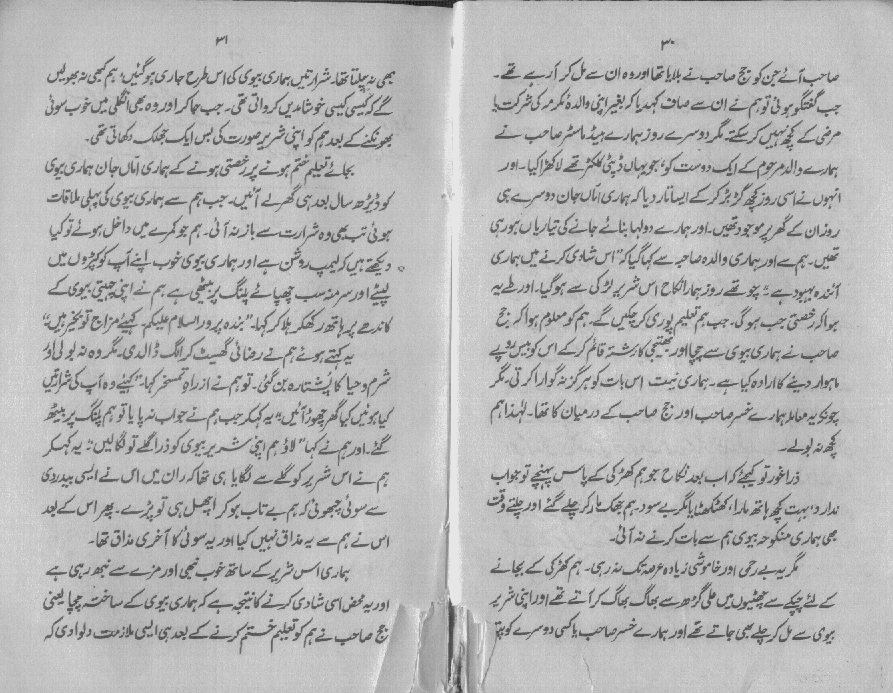 ۳۰
صاحب آئے جن کو جج صاحب نے بلایا تھا اور وہ ان سے مل کر آرہے تھے۔
جب گفتگو ہوئی تو ہم نے ان سے صاف کہدیا کہ بغیر اپنی والدہ مکرمہ کی شرکت یا
مرضی کے کچھ نہیں کرسکتے۔ مگر دوسرے روز ہمارے ہیڈ ماسٹر صاحب نے
ہمارے والد مرحوم کے ایک دوست کو، جو یہاں ڈپٹی کلکٹر تھے لاکھڑا کیا۔ اور
انہوں نے اسی روز کچھ گڑبڑ کرکے ایسا تار دیا کہ ہماری اماں جان دوسرے ہی
روز ان کے گھر پر موجود تھیں۔ اور ہمارے دولہا بنائے جانے کی تیاریاں ہورہی
تھیں۔ ہم سے اور ہماری والدہ صاحبہ سے کہا گیا کہ "اس شادی کرنے میں ہماری
آئندہ بہبود ہے"۔ چوتھے روز ہمارا نکاح اس شریر لڑکی سے ہوگیا۔ اور طے یہ
ہوا کہ رخصتی جب ہوگی۔ جب ہم تعلیم پوری کر چکیں گے۔ ہم کو معلوم ہوا کہ جج
صاحب نے ہماری بیوی سے چچا اور بھتیجی کا رشتہ قائم کرکے اس کو بیس روپے
ماہوار دینے کا ارادہ کیا ہے۔ ہماری نیت اس بات کو ہرگز نہ گوارا کرتی۔ مگر
چونکہ یہ معاملہ ہمارے خسر صاحب اور جج صاحب کے درمیان کا تھا۔ لہٰذا ہم
کچھ نہ بولے۔
ذرا غور تو کیجئے کہ اب بعد نکاح جو ہم کھڑکی کے پاس پہنچے تو جواب
ندارد، بہت کچھ ہاتھ مارا، کھٹکھٹایا مگر بے سود۔ ہم جھک مار کر چلے گئے اور چلتے وقت
بھی ہماری منکوحہ بیوی ہم سے بات کرنے نہ آئی۔
مگر یہ بے رحمی اور خاموشی زیادہ عرصہ تک نہ رہی۔ ہم کھڑکی کے بجانے
کے لئے چپکے سے چھٹیوں میں علی گڑھ سے بھاگ بھاگ کر آتے تھے اور اپنی شریر
بیوی سے مل کر چلے بھی جاتے تھے اور ہمارے خسر صاحب یا کسی دوسرے کو پتہ
۳۱
بھی نہ چلتا تھا۔ شرارتیں ہماری بیوی کی اس طرح جاری ہوگئیں، ہم کبھی نہ بھولیں
گے کہ کیسی کیسی خوشامدیں کرواتی تھی۔ جب جاکر اور وہ بھی انگلی میں خوب سوئی
بھونکنے کے بعد ہم کو اپنی شریر صورت کی بس ایک جھلک دکھاتی تھی۔
بجائے تعلیم ختم ہونے پر رخصتی ہونے کے ہماری اماں جان ہماری بیوی
کو ڈیڑھ سال بعد ہی گھر لے آئیں۔ جب ہم سے ہماری بیوی کی پہلی ملاقات
ہوئی تب بھی وہ شرارت سے باز نہ آئی۔ ہم جو کمرے میں داخل ہوئے تو کیا
دیکھتے ہیں کہ لیمپ روشن ہے اور ہماری بیوی خوب اپنے آپ کو کپڑوں میں
لپیٹے اور سر منہ سب چھپائے پلنگ پر بیٹھی ہے ہم نے اپنی چہیتی بیوی کے
کاندھے پر ہاتھ رکھکر ہلا کر کہا۔ "بندہ پرور السلام علیکم۔ کہیئے مزاج تو بخیر ہیں"
یہ کہتے ہوئے ہم نے رضائی گھسیٹ کر الگ ڈالدی۔ مگر وہ نہ بولی اور
شرم و حیا کا پشتارہ بن گئی۔ تو ہم نے از راہِ تمسخر کہا۔ "کہیئے وہ آپ کی شرارتیں
کیا ہوئیں کیا گھر چھوڑ آئیں"۔ یہ کہکر جب ہم نے جواب نہ پایا تو ہم پلنگ پر بیٹھ
گئے۔ اور ہم نے کہا "لاؤ ہم اپنی شریر بیوی کو ذرا گلے تو لگالیں"۔ یہ کہکر
ہم نے اس شریر کو گلے سے لگایا ہی تھا کہ ران میں اس نے ایسی بیدردی
سے سوئی چبھوئی کہ ہم بے تاب ہوکر اچھل ہی تو پڑے۔ پھر اس کے بعد
اس نے ہم سے یہ مذاق نہیں کیا اور یہ سوئی کا آخری مذاق تھا۔
ہماری اس شریر کے ساتھ خوب نبھی اور مزے سے نبھ رہی ہے
اور یہ محض اسی شادی کرنے کا نتیجہ ہے کہ ہماری بیوی کے ساختہ چچا یعنی
جج صاحب نے ہم کو تعلیم ختم کرنے کے بعد ہی ایسی ملازمت دلوادی کہ